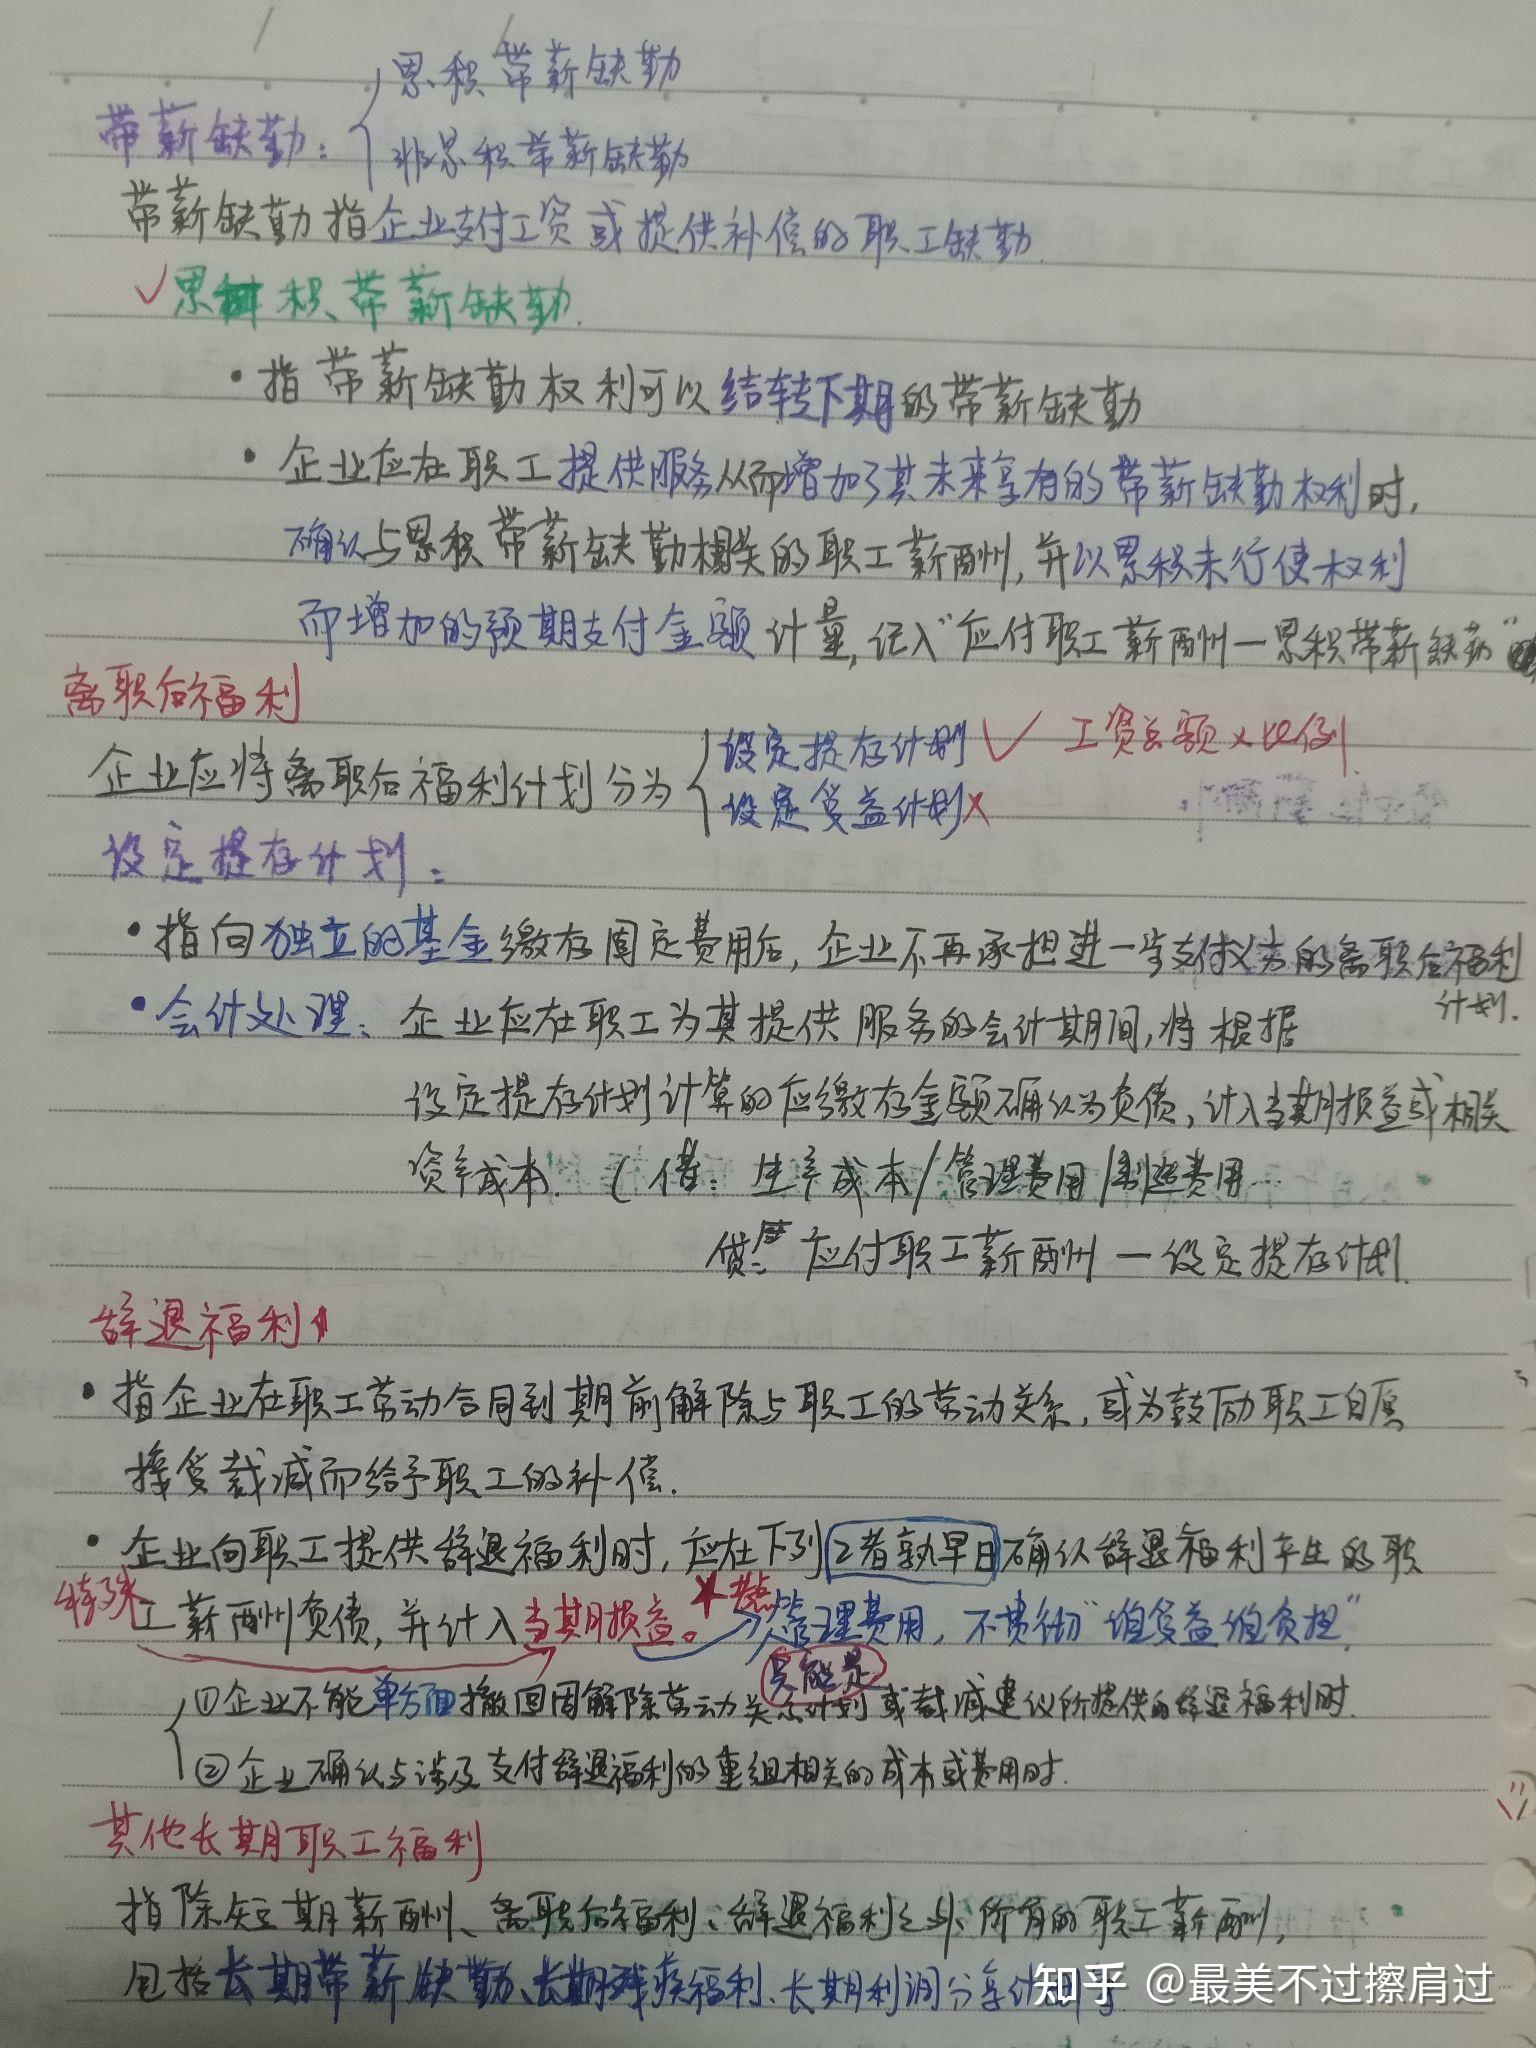 累积带薪缺勤
带薪缺勤：
非累积带薪缺勤
带薪缺勤指企业支付工资或提供补偿的职工缺勤.
✓累积带薪缺勤.
• 指带薪缺勤权利可以结转下期的带薪缺勤
• 企业应在职工提供服务从而增加了其未来享有的带薪缺勤权利时,
确认与累积带薪缺勤相关的职工薪酬,并以累积未行使权利
而增加的预期支付金额计量,记入"应付职工薪酬—累积带薪缺勤"
离职后福利
设定提存计划 ✓ 工资总额×比例.
企业应将离职后福利计划分为
设定受益计划×
设定提存计划：
• 指向独立的基金缴存固定费用后,企业不再承担进一步支付义务的离职后福利
计划.
• 会计处理：企业应在职工为其提供服务的会计期间,将根据
设定提存计划计算的应缴存金额确认为负债,计入当期损益或相关
资产成本.（借：生产成本/管理费用/制造费用…
贷：应付职工薪酬—设定提存计划.
辞退福利
• 指企业在职工劳动合同到期前解除与职工的劳动关系,或为鼓励职工自愿
接受裁减而给予职工的补偿.
• 企业向职工提供辞退福利时,应在下列2者孰早日确认辞退福利产生的职
特殊 工薪酬负债,并计入当期损益。管理费用,不贯彻"谁受益谁负担"
只能是
①企业不能单方面撤回因解除劳动关系计划或裁减建议所提供的辞退福利时.
②企业确认与涉及支付辞退福利的重组相关的成本或费用时.
其他长期职工福利
指除短期薪酬、离职后福利、辞退福利之外所有的职工薪酬,
包括长期带薪缺勤、长期残疾福利、长期利润分享计划等
知乎 @最美不过擦肩过